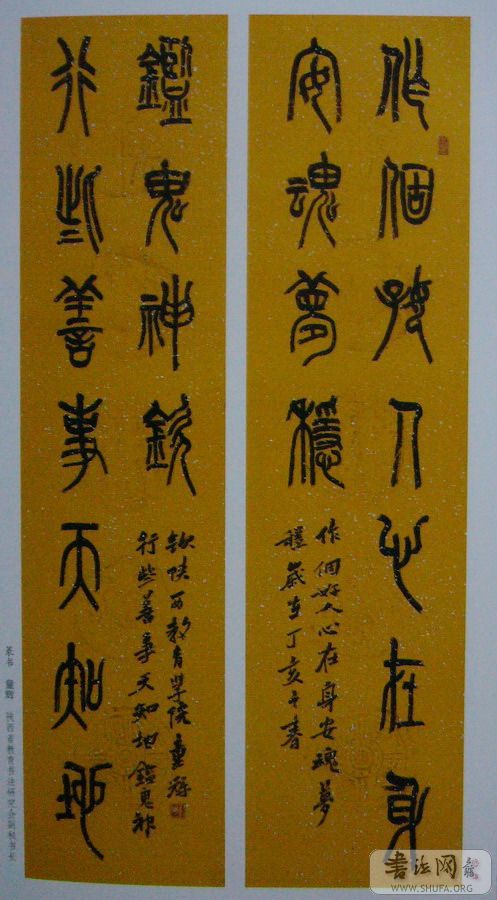 作個好人心在身
安魂夢穩
作個好人心在身安魂夢
穩歲在丁亥之春
行些善事天知地
鑑鬼神欽
行些善事天知地鑑鬼神
欽陕西教育學院
篆书 陕西省教育书法研究会副秘书长
書法网
WWW.SHUFA.ORG